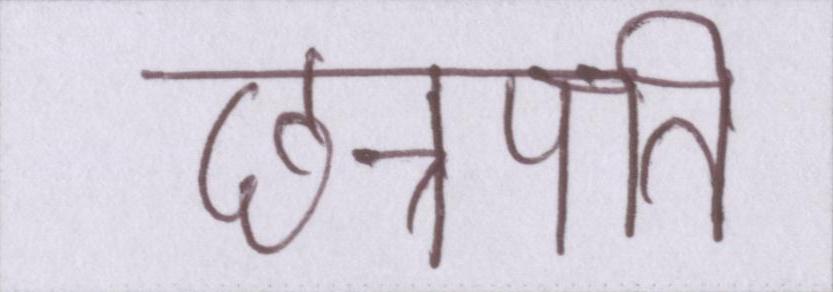 छत्रपति